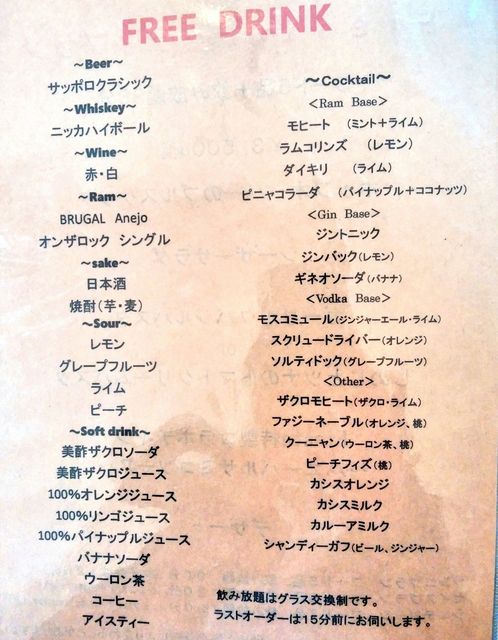 FREE DRINK
～Beer～
サッポロクラシック
～Whiskey～
ニッカハイボール
～Wine～
赤・白
～Ram～
BRUGAL Anejo
オンザロック シングル
～sake～
日本酒
焼酎(芋・麦)
～Sour～
レモン
グレープフルーツ
ライム
ピーチ
～Soft drink～
美酢ザクロソーダ
美酢ザクロジュース
100%オレンジジュース
100%リンゴジュース
100%パイナップルジュース
バナナソーダ
ウーロン茶
コーヒー
アイスティー
～Cocktail～
<Ram Base>
モヒート (ミント+ライム)
ラムコリンズ (レモン)
ダイキリ (ライム)
ピニャコラーダ (パイナップル+ココナッツ)
<Gin Base>
ジントニック
ジンバック(レモン)
ギネオソーダ(バナナ)
<Vodka Base>
モスコミュール(ジンジャーエール・ライム)
スクリュードライバー(オレンジ)
ソルティドック(グレープフルーツ)
<Other>
ザクロモヒート(ザクロ・ライム)
ファジーネーブル(オレンジ、桃)
クーニャン(ウーロン茶、桃)
ピーチフィズ(桃)
カシスオレンジ
カシスミルク
カルーアミルク
シャンディーガフ(ビール、ジンジャー)
飲み放題はグラス交換制です。
ラストオーダーは15分前にお伺いします。